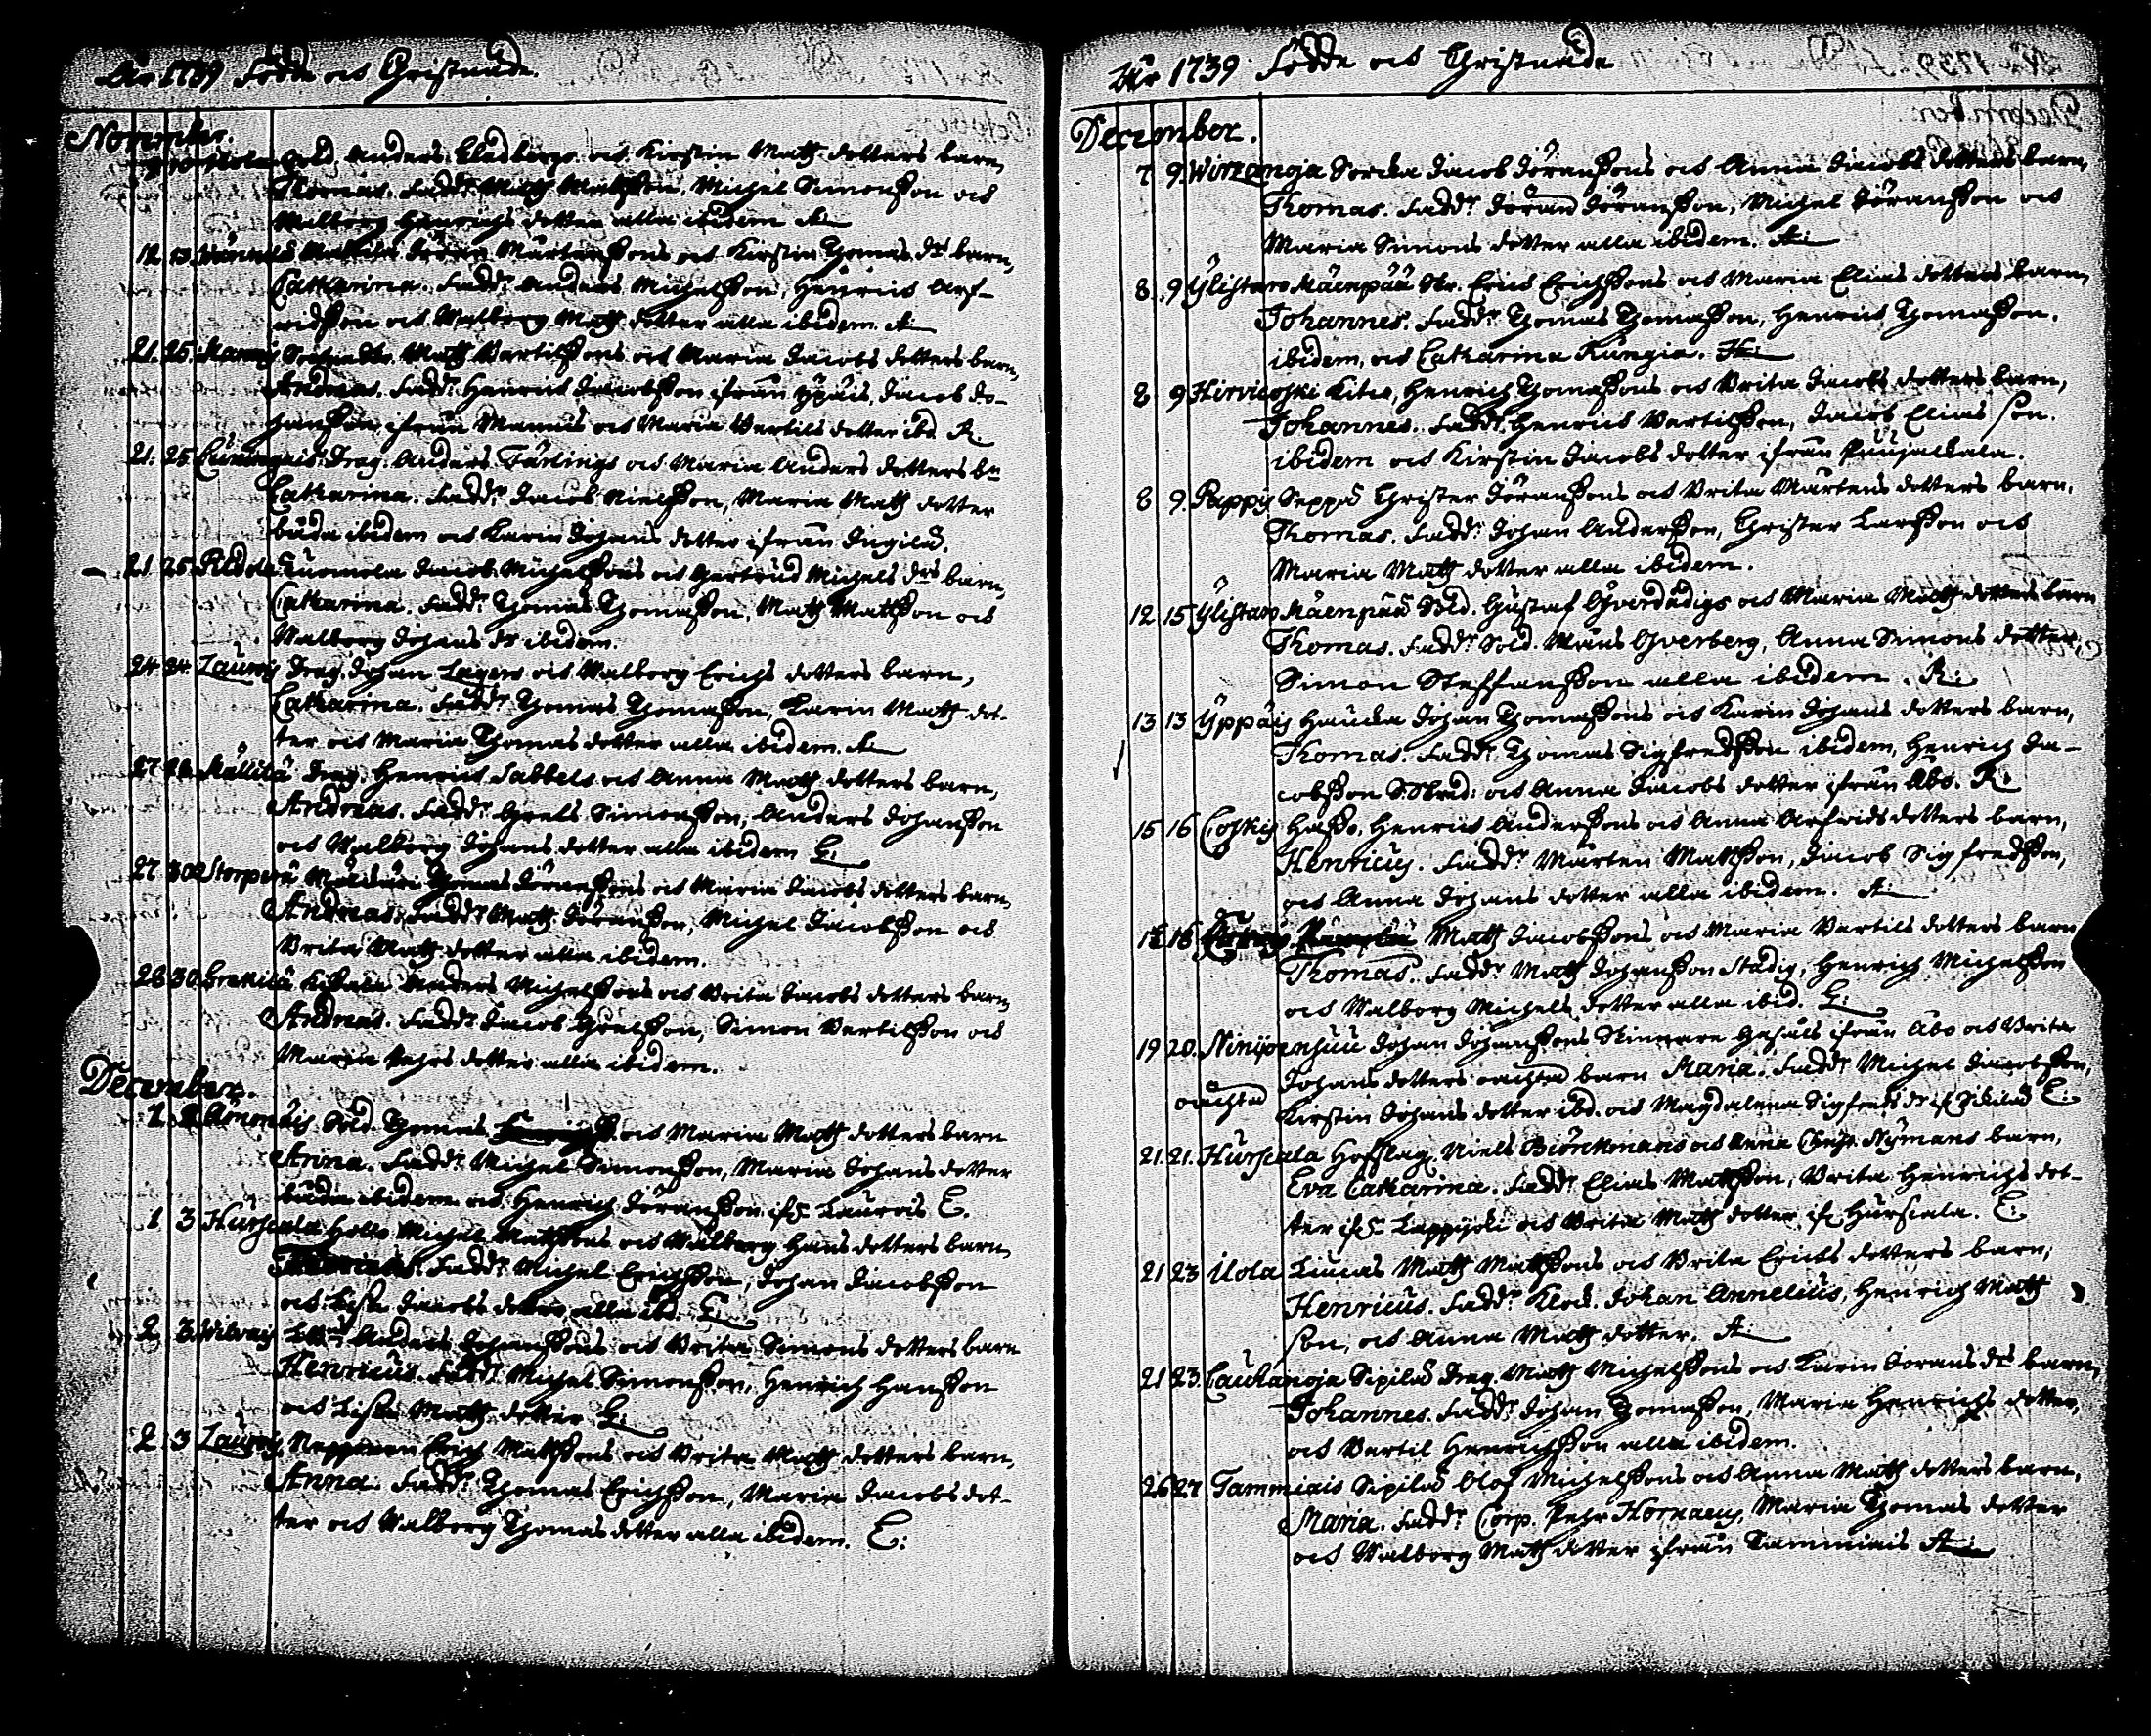 År 1739 Födde och Christnade.
November.
Sold. Anders Gladbergs och Kirstin Matts dotters barn,
Thomas. Fadd.r Matts Mattsson, Michel Simonsson och
Walborg Henrichs dotter alla ibidem A:
12 13 Mattila Jöran Mårtenssons och Kirstin Thomas dr barn,
Catharina. Fadd.r Anders Michelsson, Henric Arf-
vidsson och Walborg Matts dotter alla ibidem. A:
21. 25 Mannis Matts Bertilssons och Maria Jacobs dotters barn,
Andreas. Fadd.r Henric Jacobsson ifrån Ypäis, Jacob Jo-
hansson ifrån Mannis och Maria Bertils dotter ibd. R.
21. 25 Drag. Anders Tärlings och Maria Anders dotters bn
Catharina. Fadd.r Jacob Nielsson, Maria Matts dotter
båda ibidem och Karin Johans dotter ifrån Ingilä.
21 25 Tuomola Jacob Michelssons och Gertrud Michels drs barn,
Catharina. Fadd.r Thomas Thomasson, Matts Mattsson och
Walborg Johans dr ibidem.
24 24 Laurois Drag. Johan Lagers och Walborg Erichs dotters barn,
Catharina. Fadd.r Thomas Thomasson, Karin Matts dot-
ter och Maria Thomas dotter alla ibidem. A:
27 Mällilä Drag. Henric Sabbels och Anna Matts dotters barn,
Andreas. Fadd.r Grels Simonsson, Anders Johansson
och Walborg Johans dotter alla ibidem E:
27 30 Storperä Thomas Jöranssons och Maria Jacobs dotters barn,
Andreas. Fadd.r Matts Jöransson, Michel Jacobsson och
Brita Matts dotter alla ibidem.
28 30. Grekilä Anders Michelssons och Brita Jacobs dotters barn,
Andreas. Fadd.r Jacob Grelsson, Simon Bertilsson och
Maria Pehrs dotter alla ibidem.
December.
1. 2 Sold. Thomas och Maria Matts dotters barn
Anna. Fadd.r Michel Simonsson, Maria Johans dotter
båda ibidem och Henrich Jöransson ifr. Laurois E.
1 3 Hursiala Hollo Michel Mattssons och Walborg Hans dotters barn
Fadd.r Michel Erichsson, Johan Jacobsson
och Lisa Jacobs dotter alla ibd. E:
2 3. Anders Johanssons och Brita Simons dotters barn
Henricus. Fadd.r Michel Simonsson, Henrich Hansson
och Lisa Matts dotter E:
2 3 Laurois Nepponen Erich Mattssons och Brita Matts dotters barn,
Anna. Fadd.r Thomas Erichsson, Maria Jacobs dot-
ter och Walborg Thomas dotter alla ibidem. E:
År 1739 Födde och Christnade
December.
7 9. Wirzanoja Sorcka Jacob Jöranssons och Anna Jacobs dotters barn,
Thomas. Fadd.r Jöran Jöransson, Michel Jöransson och
Maria Simons dotter alla ibidem. A:
8 9 Ylistaro Mäenpää Eric Erichssons och Maria Elias dotters barn,
Johannes. Fadd.r Thomas Thomasson, Henric Thomasson.
ibidem, och Catharina Kungia. A:
8 9 Hirvicoski Kitis, Henrich Thomassons och Brita Jacobs dotters barn,
Johannes. Fadd.r Henric Bertilsson, Jacob Elias son.
ibidem och Kirstin Jacobs dotter ifrån Puujalkala.
8 9. Pappis Seppä Christer Jöranssons och Brita Mårtens dotters barn,
Thomas. Fadd.r Johan Andersson, Christer Larsson och
Maria Matts dotter alla ibidem.
12 15 Ylistaro Mäenpää Sold. Gustaf och Maria Matts dotters barn
Thomas. Fadd.r Sold. Måns Qverberg, Anna Simons dotter,
Simon Steffansson alla ibidem. R:
13 13 Yppäis Haucka Johan Thomassons och Karin Johans dotters barn,
Thomas. Fadd.r Thomas Sigfredsson ibidem, Henrich Ja-
cobsson och Anna Jacobs dotter ifrån Åbo. R:
15 16 Coskis Hasso, Henric Anderssons och Anna Arfvids dotters barn,
Henricus. Fadd.r Mårten Mattsson, Jacob Sigfredsson,
och Anna Johans dotter alla ibidem. A:
16 Matts Jacobssons och Maria Bertils dotters barn
Thomas. Fadd.r Matts Johansson Städig, Henrich Michelsson
och Walborg Michels dotter alla ibid. E:
19 20. Ninipenssuu Johan Johanssons Skinnare Gesäls ifrån Åbo och Brita
Johans dotters oächta barn Maria. Fadd.r Michel Jacobsson,
oächta Kirstin Johans dotter ibd. och Magdalena Sigfreds dr if. E:
21. 21. Hursiala Hofslag. Niels Biörckmans och Anna Christ. Nymans barn,
Eva Catharina. Fadd.r Elias Mattsson, Brita Henrichs dot-
ter ifr. Lappijoki och Brita Matts dotter ifr. Hursiala. E:
21 23 Uola Lucas Matts Mattssons och Brita Erichs dotters barn,
Henricus. Fadd.r Klock. Johan Annelius, Henrich Matts
son, och Anna Matts dotter. A:
21 23. Caukanoja Sipilä Drag. Matts Michelssons och Karin Jörans dr barn,
Johannes. Fadd.r Johan Thomasson, Maria Henrichs dotter,
och Bertil Henrichsson alla ibidem.
26 27 Tammiais Sipilä Olof Michelssons och Anna Matts dotters barn,
Maria. Fadd.r Corp. Pehr Hornaeus, Maria Thomas dotter
och Walborg Matts dotter ifrån Tammiais A: